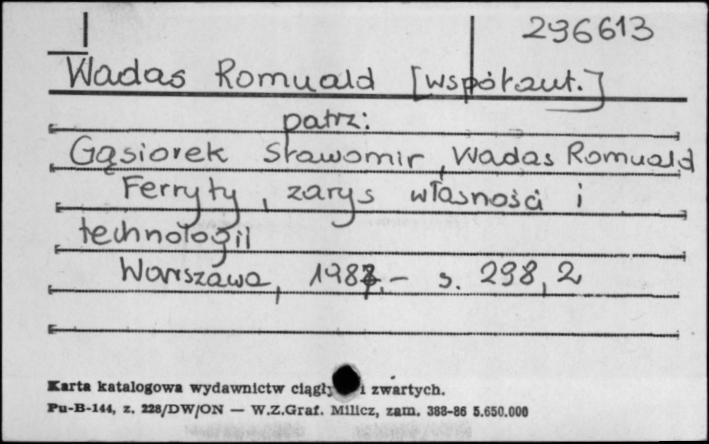 296613
Wadas Romuald [współaut.]
patrz:
Gąsiorek Sławomir, Wadas Romuald
Ferryty, zarys własności i
technologii
Warszawa, 1987,- s. 298, 2
Karta katalogowa wydawnictw ciągły i zwartych.
Pu-B-144, z. 228/DW/ON — W.Z.Graf. Milicz, zam. 388-86 5.650.000